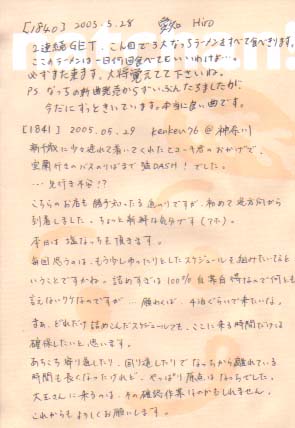 [1840] 2005.5.28 愛知 Hiro
2連続GET、こん回で3大なっちラーメンをすべて食べきります。
ここのラーメンは一日何回食べてもいいわけよ…。
必ずまた来ます。大将覚えてて下さいね。
PS なっちの新曲発売からずいぶんたちましたが、
今だにずっときいています。本当に良い曲です。
[1841] 2005.05.29 kenken76@神奈川
新千歳に少々遅れて着いてくれたコーキ君のおかげで、
室蘭行きのバスのりばまで猛DASH!でした。
…見行き不安!?
こちらのお店も勝手知ったる道のりですが、初めて逆方向から
到着しました。ちょっと新鮮な気分です(アホ)。
本日は塩なっちを頂きます。
毎回思うのは、もう少しゆったりとしたスケジュールを組みたいなと
いうことですかね。詰めすぎは100%自業自得なので何とも
言えないワケなのですが…願わくば、4泊ぐらいで来たいな。
まぁ、どれだけ詰めこんだスケジュールでも、ここに来る時間だけは
確保したいと思います。
あちこち寄り道したり、回り道したりでなっちから離れている
時間も長くなったけれど、やっぱり原点はなっちでした。
大王さんに来るのは、その確認作業なのかもしれません。
これからもよろしくお願いします。